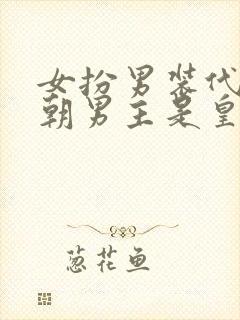 女扮男装代
朝男主是皇
葱花鱼